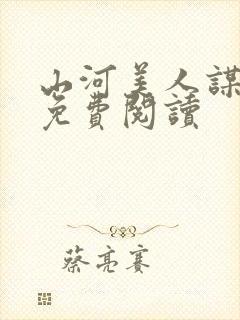 山河美人謀
免費閱讀
蔡亮賽